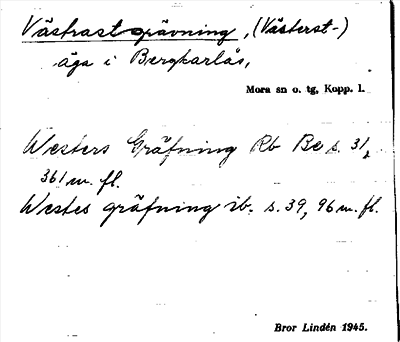 Västrast grävning, (Västerst-)
äga i Bergkarlås,
Mora sn o. tg, Kopp. l.
Westers Gräfning Rb Be s. 31,
361 m. fl.
Westes gräfning ib. s. 39, 96 m. fl.
Bror Lindén 1945.